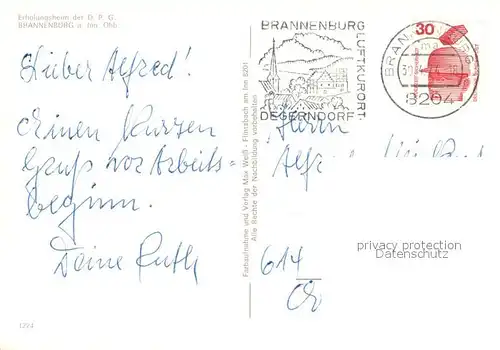 Erholungsheim der D. P. G.
BRANNENBURG a. Inn Obb.
Lieber Alfred!
Einen kurzen
Gruß vor Arbeits-
beginn.
Deine Ruth
1294
Farbaufnahme und Verlag Max Weiß - Flintsbach am Inn 8201
Alle Rechte der Nachbildung vorbehalten
BRANNENBURG
LUFTKURORT
DEGERNDORF
BRANNENBURG
8204
30
Herrn
Alfred
614
privacy protection
Datenschutz